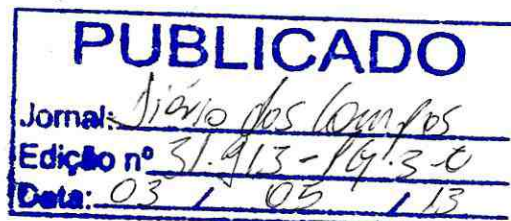 PUBLICADO
Jornal: Diário dos Campos
Edição nº 31.913 - PG. 3-C
Data: 03 / 05 / 13